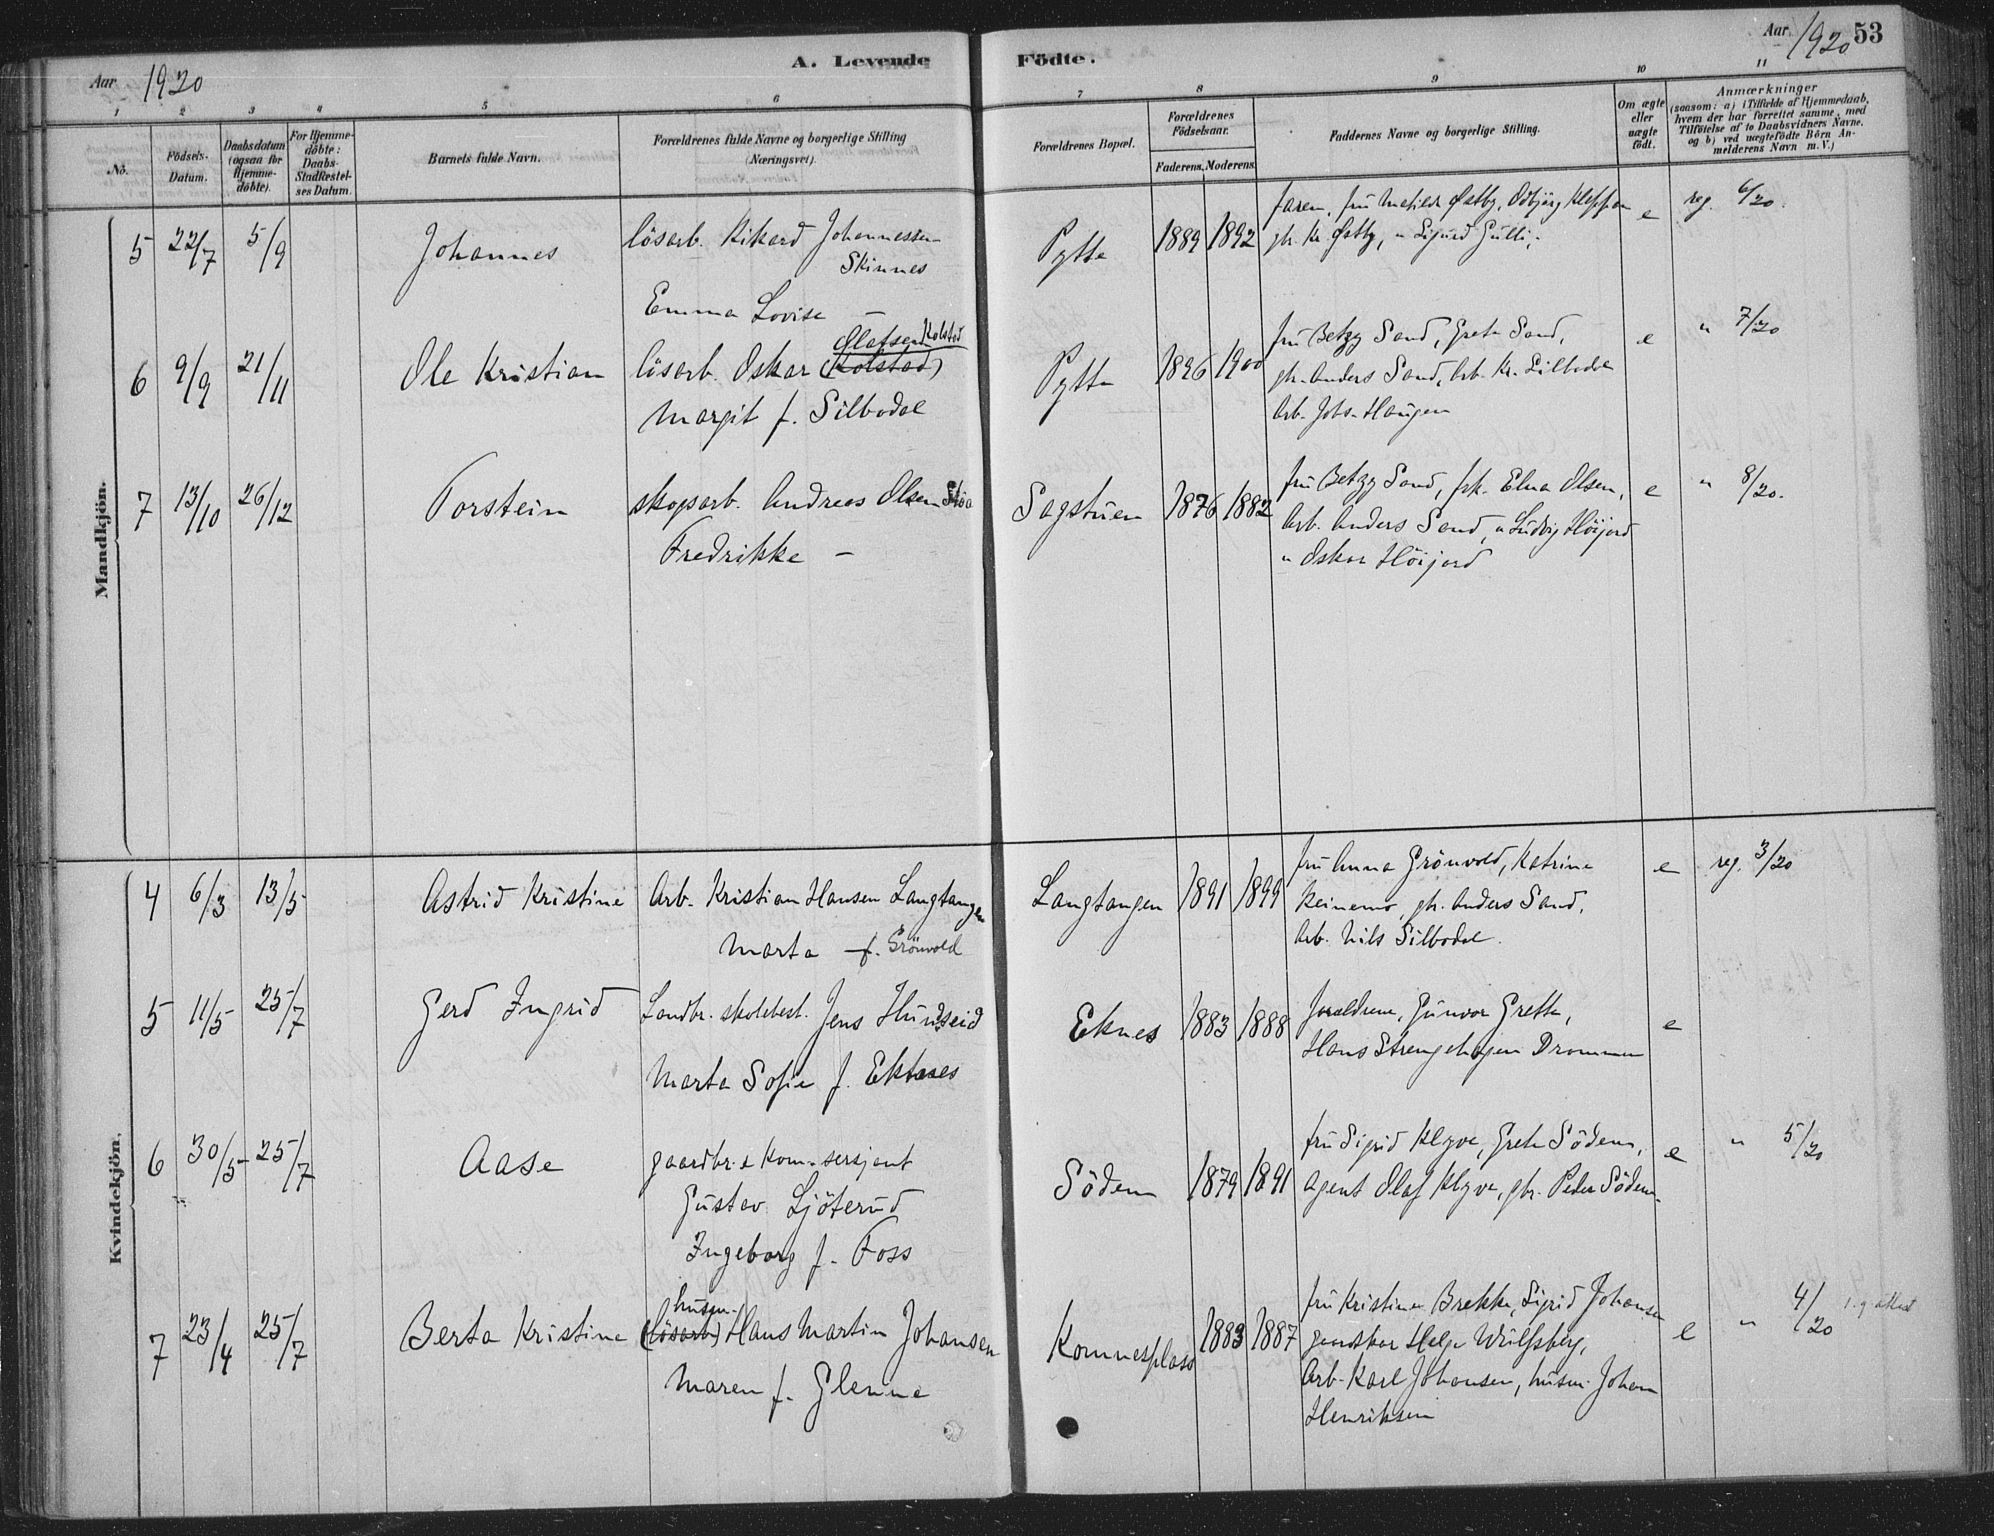 Aar 1920
A. Levende
Födte.
Aar 1920
53
1 2 3 4 5 6 7 8 9 10 11
No.
Födsels-Datum.
Daabsdatum (ogsaa for Hjemme-döbte).
For Hjemme-döbte: Daabs-Stadfæstel-ses Datum.
Barnets fulde Navn.
Forældrenes fulde Navne og borgerlige Stilling (Næringsvei).
Forældrenes Bopæl.
Forældrenes Födselsaar.
Faderens. Moderens.
Faddernes Navne og borgerlige Stilling.
Om ægte eller uægte födt.
Anmærkninger
(saasom: a) i Tilfælde af Hjemmedaab,
hvem der har forrettet samme, med
Tilföielse af to Daabsvidners Navne,
og b) ved uægtefödte Börn An-
melderens Navn m. V.)
Mandkjön.
5 22/7 5/9 Johannes
lösarb. Rikard Johannessen
Skinnes
Emma Lovise —
Pytte 1889 1892
faren, fru Matilde Østby, Odbjörg Kleppen
gbr. Kr. Østby, " Sigurd Gulli,
e reg. 6/20.
6 9/9 21/11 Ole Kristian
Olafsen Kolstad
lösarb. Oskar (Kolstad)
Margit f. Silbodal
Pytte 1896 1900
fru Betzy Sand, Grete Sand,
gbr. Anders Sand, Arb. Kr. Silbodal
Arb. Johs. Haugen
e " 7/20
7 13/10 26/12 Torstein
skogsarb. Andreas Olsen Stöa
Fredrikke —
Sagstuen 1876 1882
fru Betzy Sand, frk. Elna Olsen,
Arb. Anders Sand, " Ludvig Höijord
" Oskar Höijord
e " 8/20.
Kvindekjön.
4 6/3 13/5 Astrid Kristine
Arb. Kristian Hansen Langtangen
Marta — f. Grönvold
Langtangen 1891 1899
fru Anna Grönvold, Katrine
Reinemo, gbr. Anders Sand,
Arb. Nils Silbodal.
e reg. 3/20
5 11/5 25/7 Gerd Ingrid
Landbr. skolebest. Jens Hundseid
Marta Sofie f. Eknes
Eknes 1883 1888
foreldrene, Gunvor Grette,
Hans Strengehagen Drammen
e
6 30/5 25/7 Aase
gaardbr. & kom-sersjant
Gustav Ljöterud
Ingeborg f. Foss
Södem 1879 1891
fru Sigrid Klyve, Grete Södem,
Agent Olaf Klyve, gbr. Peder Södem.
e " 5/20
7 23/4 25/7 Berta Kristine
husm.
(lösarb) Hans Martin Johansen
Maren f. Glenne
Komnesplass 1883 1887
fru Kristine Brekke, Sigrid Johansen
Helge Wulfsberg,
Arb. Karl Johansen, husm. Johan
Henriksen
e " 4/20